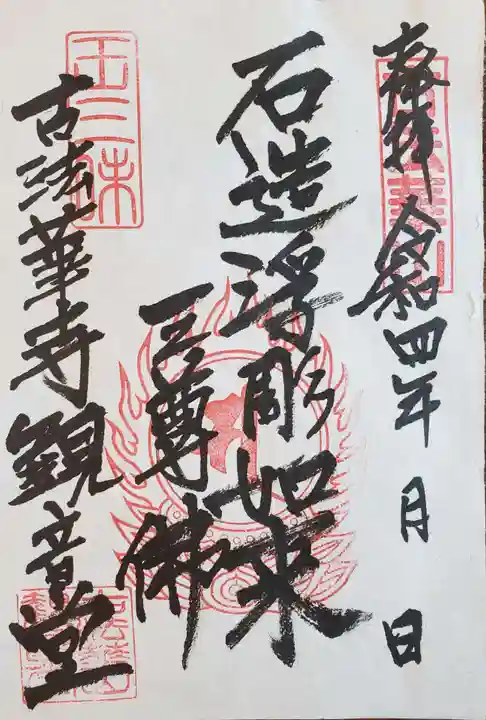 奉拝 令和四年 月 日
石造浮彫如来
三尊佛
古法華寺観音堂
王三昧